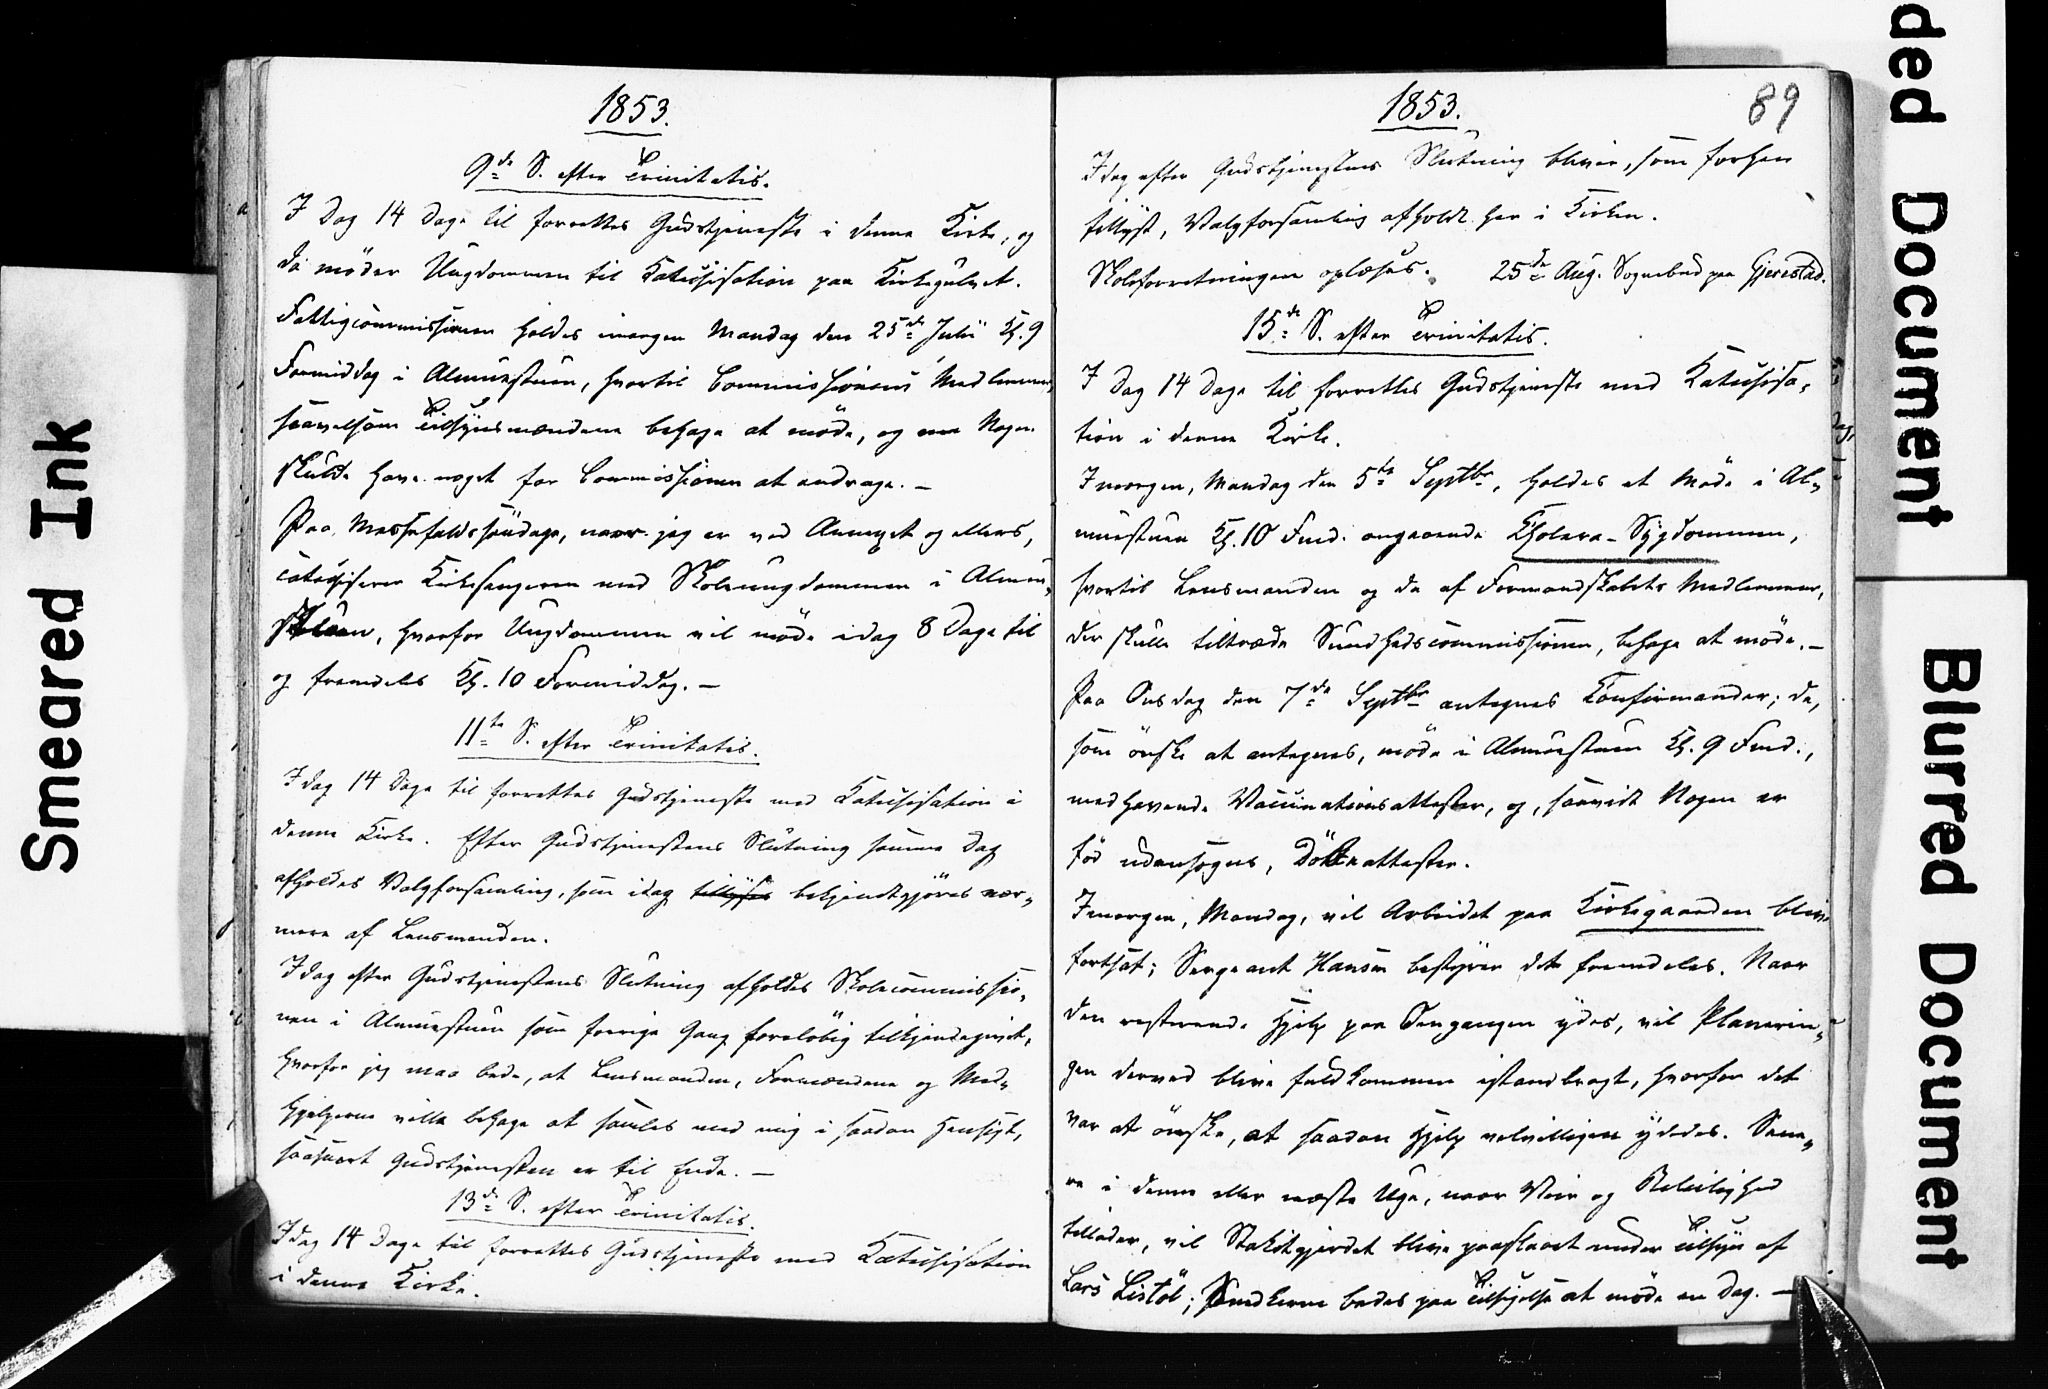 1853.
9de S. efter Trinitatis.
I Dag 14 Dage til forrettes Gudstjeneste i denne Kirke, og
da møder Ungdommen til Katechisation paa Kirkegulvet.
Fattigcommissionen holdes imorgen Mandag den 25de Julii Kl. 9
Formiddag i Almuestuen, hvortil Commissionens Medlemmer,
saavelsom Tilsynsmændene behage at møde, og om Nogen
skulde have noget for Commissionen at andrage. –
Paa Messefaldssöndage, naar jeg er ved Annexet og ellers,
catechiserer Kirkesangeren med Skoleungdommen i Almue-
skolen, hvorfor Ungdommen vil møde idag 8 Dage til
og fremdeles Kl. 10 Formiddag. –
11te S. efter Trinitatis.
I dag 14 Dage til forrettes Gudstjeneste med Katechisation i
denne Kirke. Efter Gudstjenestens Slutning samme Dag
afholdes Valgforsamling, som idag tillyses bekjendtgjöres nær-
mere af Lensmanden.
I dag efter Gudstjenestens Slutning afholdes Skolecommissio-
nen i Almuestuen som forrige Gang foreløbig tilkjendegivet,
hvorfor jeg maa bede, at Lensmanden, Formændene og Med-
hjelperne ville behage at samles med mig i saadan Hensigt,
saasnart Gudstjenesten er til Ende. –
13de S. efter Trinitatis.
I dag 14 Dage til forrettes Gudstjeneste med Katechisation
i denne Kirke.
1853.
89
I dag efter Gudstjenestens Slutning bliver, som forhen
tillyst, Valgforsamling afholdt her i Kirken.
Skoleforretningen oplæses. 25de Aug. Sognebud paa Gjerestad.
15de S. efter Trinitatis.
I Dag 14 Dage til forrettes Gudstjeneste med Katechisa-
tion i denne Kirke.
I morgen, Mandag den 5te Septbr, holdes et Møde i Al-
muestuen Kl. 10 Fmd. angaaende Kholera-Sygdommen,
hvortil Lensmanden og de af Formandskabets Medlemmer,
der skulle tiltræde Sundhedscommissionen, behage at møde. –
Paa Onsdag den 7de Septbr antegnes Konfirmander; de,
som önske at antegnes, møde i Almuestuen Kl. 9 Fmd.,
medhavende Vaccinationsattester, og, saavidt Nogen er
fød udensogns, Döbeattester.
I morgen, Mandag, vil Arbeidet paa Kirkegaarden blive
fortsat; Sergeant Hansen bestyrer det fremdeles. Naar
den resterende Hjelp paa Omgangen ydes, vil Planerin-
gen derved blive fuldkommen istandbragt, hvorfor det
var at önske, at saadan Hjelp velvilligen ydedes. Sene-
re i denne eller næste Uge, naar Veir og Beleilighed
tillader, vil Stakitgjerdet blive paaslaaet under Tilsyn af
Lars Listöl; Smedkerne bedes paa Tilsigelse at møde en Dag. –
Smeared Ink
ded Document
Blurred Document